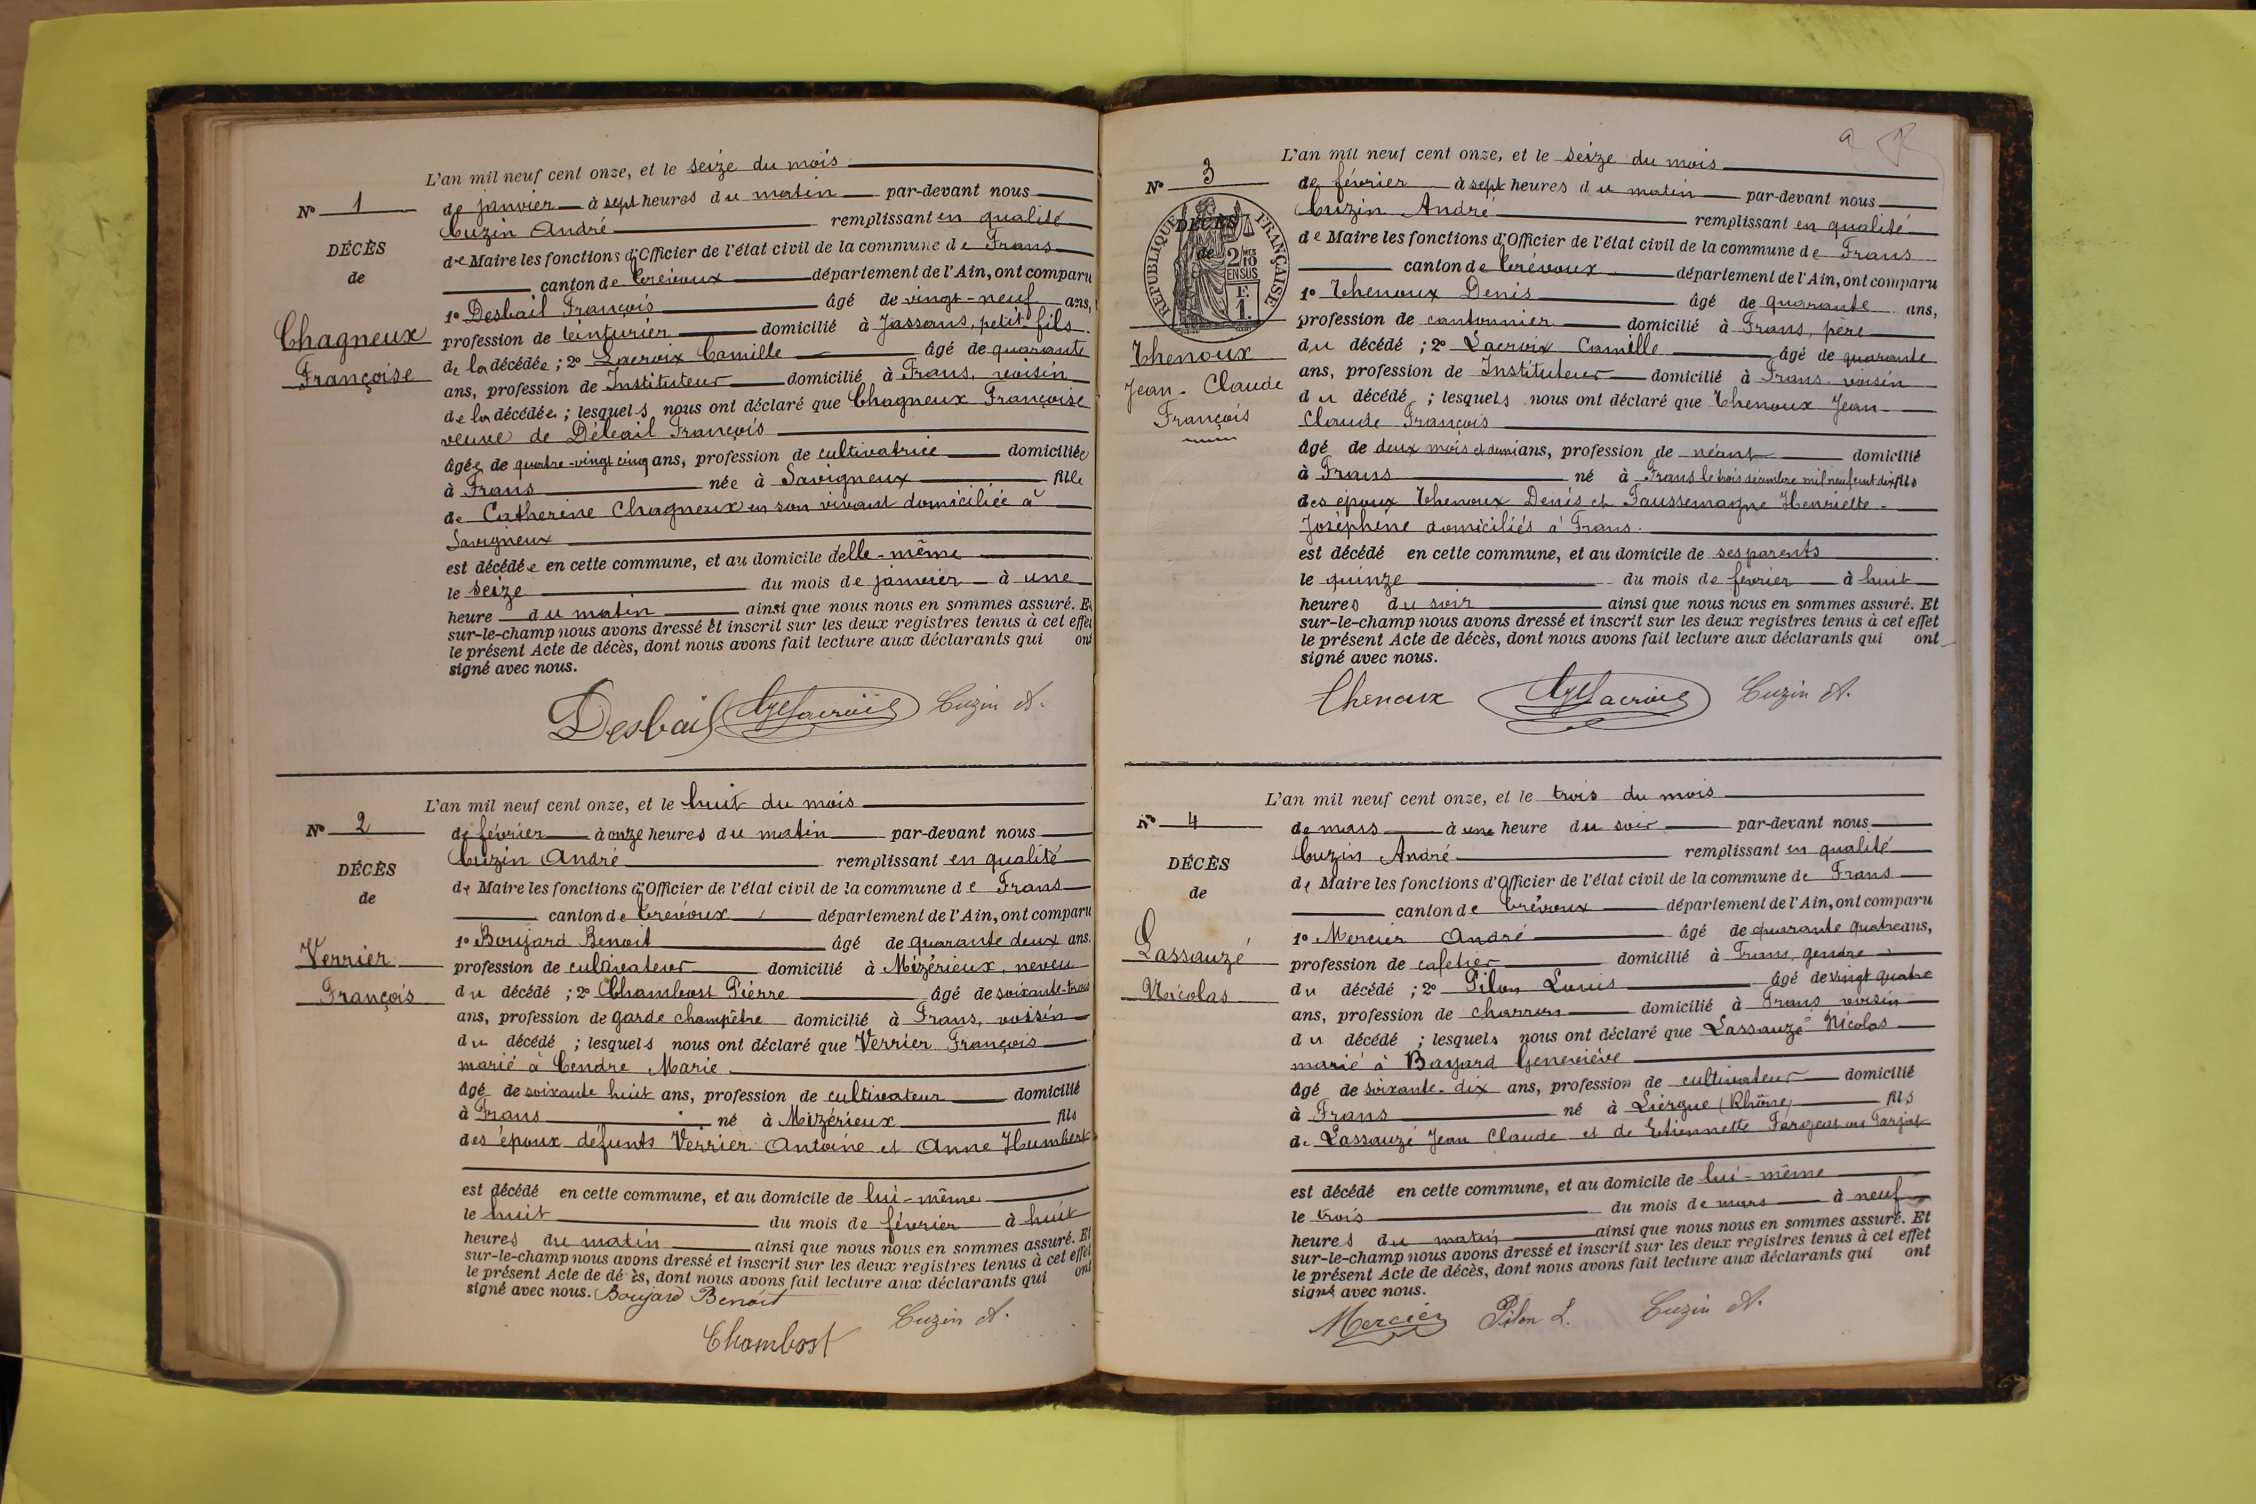 N° 1
DÉCÈS
de
Chagneux
Françoise
L'an mil neuf cent onze, et le seize du mois
de janvier à sept heures du matin par-devant nous
Cuzin André remplissant en qualité
de Maire les fonctions d'Officier de l'état civil de la commune de Frans
canton de Trévoux département de l'Ain, ont comparu
1° Desbail François âgé de vingt-neuf ans,
profession de teinturier domicilié à Jassans, petit-fils
de la décédée ; 2° Lacroix Camille âgé de quarante
ans, profession de Instituteur domicilié à Frans, voisin
de la décédée ; lesquels nous ont déclaré que Chagneux Françoise
veuve de François
âgée de quatre-vingt cinq ans, profession de cultivatrice domiciliée
à Frans née à Savigneux fille
de Catherine Chagneux en son vivant domiciliée à
Savigneux
est décédée en cette commune, et au domicile d'elle-même
le seize du mois de janvier à une
heure du matin ainsi que nous nous en sommes assuré. Et
sur-le-champ nous avons dressé et inscrit sur les deux registres tenus à cet effet
le présent Acte de décès, dont nous avons fait lecture aux déclarants qui ont
signé avec nous.
Desbail Lacroix Cuzin A.
N° 2
DÉCÈS
de
Verrier
François
L'an mil neuf cent onze, et le huit du mois
de février à onze heures du matin par-devant nous
Cuzin André remplissant en qualité
de Maire les fonctions d'Officier de l'état civil de la commune de Frans
canton de Trévoux département de l'Ain, ont comparu
1° Boujard Benoit âgé de quarante deux ans.
profession de cultivateur domicilié à Mizérieux, neveu
du décédé ; 2° Chambost Pierre âgé de soixante-trois
ans, profession de garde champêtre domicilié à Frans, voisin
du décédé ; lesquels nous ont déclaré que Verrier François
marié à Cendre Marie
âgé de soixante huit ans, profession de cultivateur domicilié
à Frans né à Mizérieux fils
des époux défunts Verrier Antoine et Anne Humbert
est décédé en cette commune, et au domicile de lui-même
le huit du mois de février à huit
heures du matin ainsi que nous nous en sommes assuré. Et
sur-le-champ nous avons dressé et inscrit sur les deux registres tenus à cet effet
le présent Acte de décès, dont nous avons fait lecture aux déclarants qui ont
signé avec nous. Boujard Benoit
Chambost Cuzin A.
N° 3
RÉPUBLIQUE FRANÇAISE
DÉCÈS
de
2/10
EN SUS
F.
1.
Thenoux
Jean-Claude
François
L'an mil neuf cent onze, et le seize du mois
de février à sept heures du matin par-devant nous
Cuzin André remplissant en qualité
de Maire les fonctions d'Officier de l'état civil de la commune de Frans
canton de Trévoux département de l'Ain, ont comparu
1° Thenoux Denis âgé de quarante ans,
profession de cantonnier domicilié à Frans, père
du décédé ; 2° Lacroix Camille âgé de quarante
ans, profession de Instituteur domicilié à Frans voisin
du décédé ; lesquels nous ont déclaré que Thenoux Jean-
Claude François
âgé de deux mois et demi ans, profession de néant domicilié
à Frans né à Frans le trois décembre mil neuf cent dix fils
des époux Thenoux Denis et Faussemagne Henriette-
Joséphine domiciliés à Frans.
est décédé en cette commune, et au domicile de ses parents
le quinze du mois de février à huit
heures du soir ainsi que nous nous en sommes assuré. Et
sur-le-champ nous avons dressé et inscrit sur les deux registres tenus à cet effet
le présent Acte de décès, dont nous avons fait lecture aux déclarants qui ont
signé avec nous.
Thenoux Lacroix Cuzin A.
N° 4
DÉCÈS
de
Lassauzé
Nicolas
L'an mil neuf cent onze, et le trois du mois
de mars à une heure du soir par-devant nous
Cuzin André remplissant en qualité
de Maire les fonctions d'Officier de l'état civil de la commune de Frans
canton de Trévoux département de l'Ain, ont comparu
1° Mercier André âgé de quarante quatre ans,
profession de cafetier domicilié à Frans, gendre
du décédé ; 2° Pilon Louis âgé de vingt quatre
ans, profession de charron domicilié à Frans voisin
du décédé ; lesquels nous ont déclaré que Lassauzé Nicolas
marié à Bayard Geneviève
âgé de soixante-dix ans, profession de cultivateur domicilié
à Frans né à Liergue (Rhône) fils
de Lassauzé Jean Claude et de Etiennette ou
est décédé en cette commune, et au domicile de lui-même
le trois du mois de mars à neuf
heures du matin ainsi que nous nous en sommes assuré. Et
sur-le-champ nous avons dressé et inscrit sur les deux registres tenus à cet effet
le présent Acte de décès, dont nous avons fait lecture aux déclarants qui ont
signé avec nous.
Mercier Pilon L. Cuzin A.